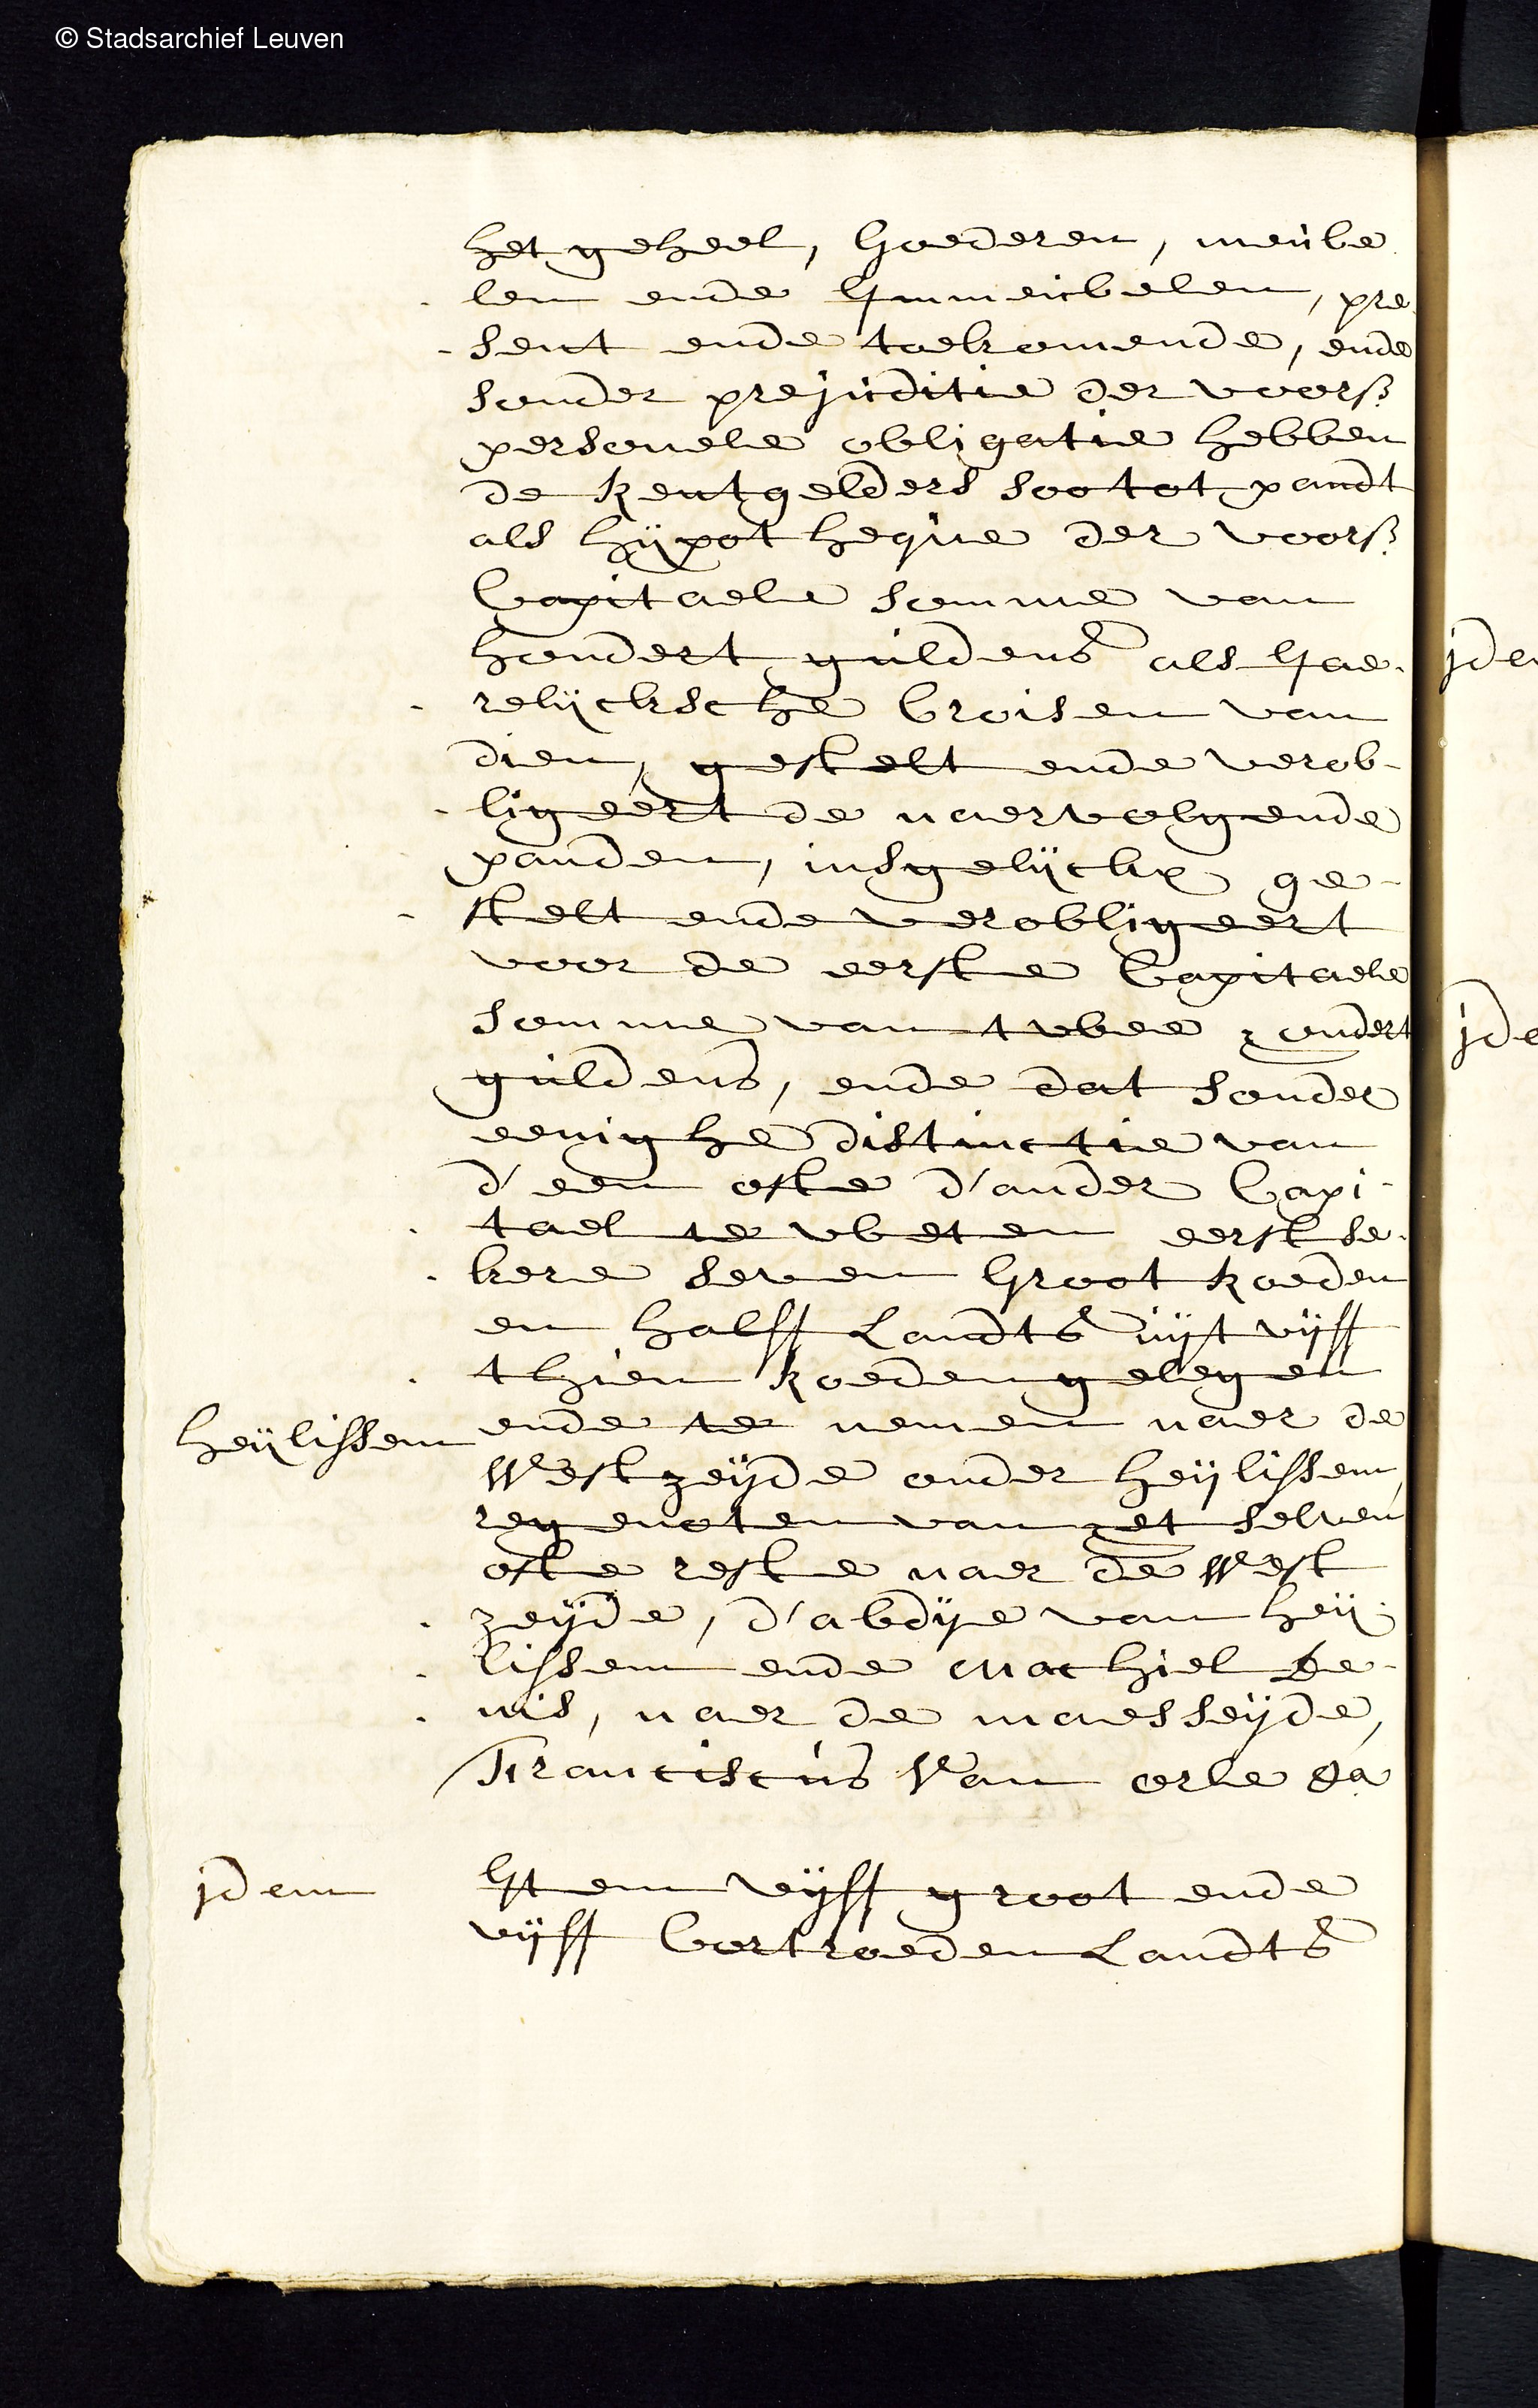 © Stadsarchief Leuven
het geheel, Goederen, meúbe
len ende Immeúbelen, pre
sent ende toekomende, ende
sonder prejúditie der voors.
personele obligatie hebben
de Rentgelders soo tot pandt
als hÿpotheqúe der voors.
Capitaele somme van
hondert gúldens als Jae-
relijcksche Croisen van
dien, gestelt ende verob-
ligeert de naervolgende
panden, insgelijckx ge-
stelt ende verobligeert
voor de eerste Capitaele
somme van twee hondert
gúldens, ende dat sonder
eenighe distinctie van
d'een ofte d'ander Capi-
tael te weten eerst se-
kere seven Groot Roeden
en halff Landts úÿt vijff
thien Roeden gelegen
heÿlissem
ende te nemen naer de
West zeÿde onder heÿlissem,
regenoten van het selven
ofte reste naer de West
zeÿde, d'abdÿe van heÿ-
lissem ende Machiel De-
nis, naer de maesseÿde,
Franciscús Van orle &a
jdem
Item vijff groot ende
vijff Cortroeden Landts
jde
jde